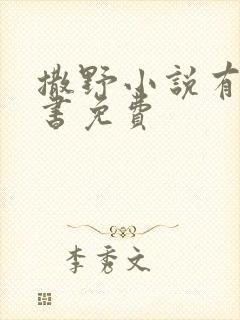 撒野小说有
書免費
李秀文